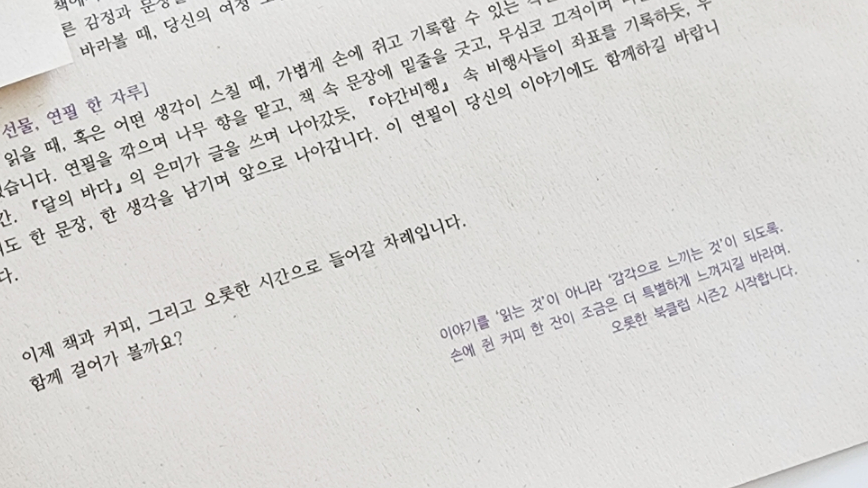 른 감정과 문장을
바라볼 때, 당신의 여정
선물, 연필 한 자루]
읽을 때, 혹은 어떤 생각이 스칠 때, 가볍게 손에 쥐고 기록할 수 있는
습니다. 연필을 깎으며 나무 향을 맡고, 책 속 문장에 밑줄을 긋고, 무심코 끄적이며
간. 『달의 바다』의 은미가 글을 쓰며 나아갔듯, 『야간비행』 속 비행사들이 좌표를 기록하듯, 우
도 한 문장, 한 생각을 남기며 앞으로 나아갑니다. 이 연필이 당신의 이야기에도 함께하길 바랍니
다.
이제 책과 커피, 그리고 오롯한 시간으로 들어갈 차례입니다.
함께 걸어가 볼까요?
이야기를 '읽는 것'이 아니라 '감각으로 느끼는 것'이 되도록.
손에 쥔 커피 한 잔이 조금은 더 특별하게 느껴지길 바라며.
오롯한 북클럽 시즌2 시작합니다.